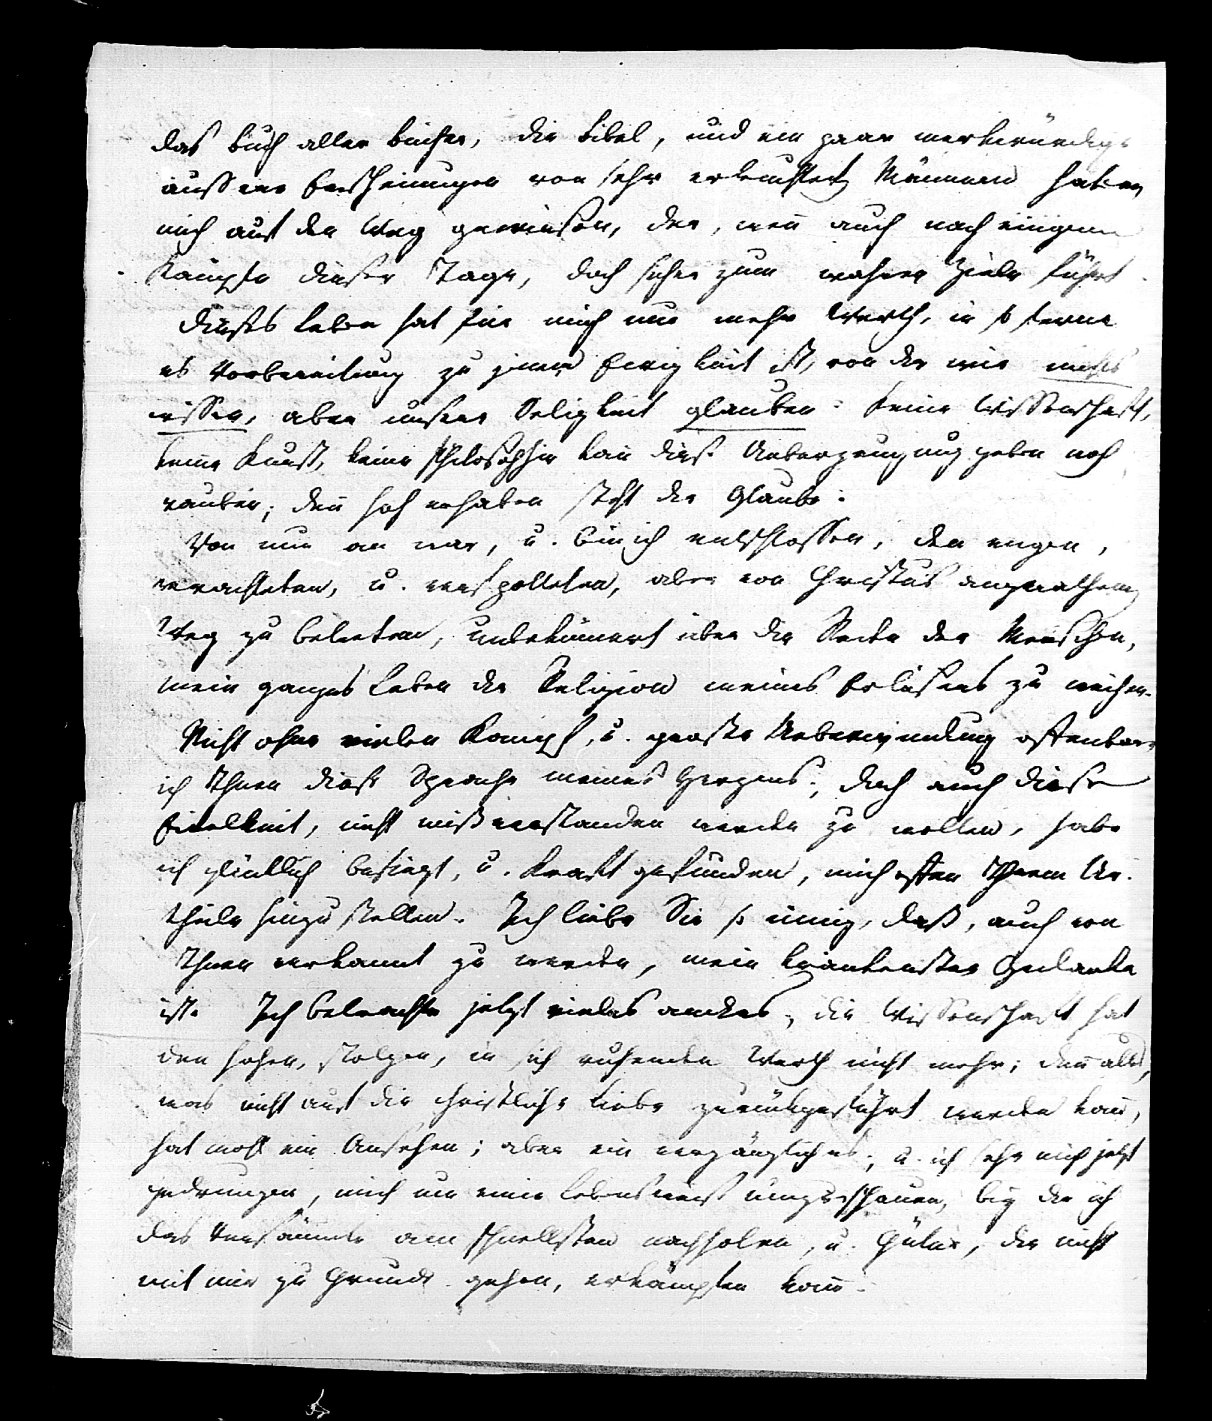 das Buch aller Bücher, die Bibel, und ein paar merkwürdige
äussere Erscheinungen von sehr erleuchteten Männern haben
mich auf den Weg gewiesen, der, wen̄ auch nach einigem
Kampfe dieser Tage, doch sicher zum wahren Ziele führt.
Dieses Leben hat für mich nur mehr Werth, in so ferne
es Vorbereitung zu jener Ewigkeit ist, von der wir nichts
wissen, aber unsere Seligkeit glauben: keine Wissenschaft,
keine Kunst, keine Philosophie kan̄ diese Ueberzeugung geben noch
rauben; den̄ hoch erhaben steht der Glaube.
Von nun an war, u. bin ich entschlossen, den engen,
verachteten, u. verspotteten, aber von Christus angerathenen
Weg zu betreten, unbekümert über die Rede der Menschen,
mein ganzes Leben der Religion meines Erlösers zu weihen.
Nicht ohne vielen Kampf, u. große Ueberwindung offenbare
ich Ihnen diese Sprache meines Herzens; doch auch diese
Eitelkeit, nicht mißverstanden werden zu wollen, habe
ich glücklich besiegt, u. Kraft gefunden, mich offen Ihrem Ur-
theile hinzustellen. Ich liebe Sie so innig, daß, auch von
Ihnen verkannt zu werden, mein kränkenster Gedanke
ist. Ich betrachte jetzt vieles anders; die Wissenschaft hat
den hohen, stolzen, in sich ruhenden Werth nicht mehr; den̄ alles,
was nicht auf die christliche Liebe zurückgeführt werden kan̄,
hat wohl ein Ansehen; aber ein vergängliches; u. ich sehe mich jetzt
gedrungen, mich um eine Lebensweise umzuschauen, bey der ich
das Versäumte am schnellsten nachholen, u. Güter, die nicht
mit mir zu Grunde gehen, erkämpfen kan̄.